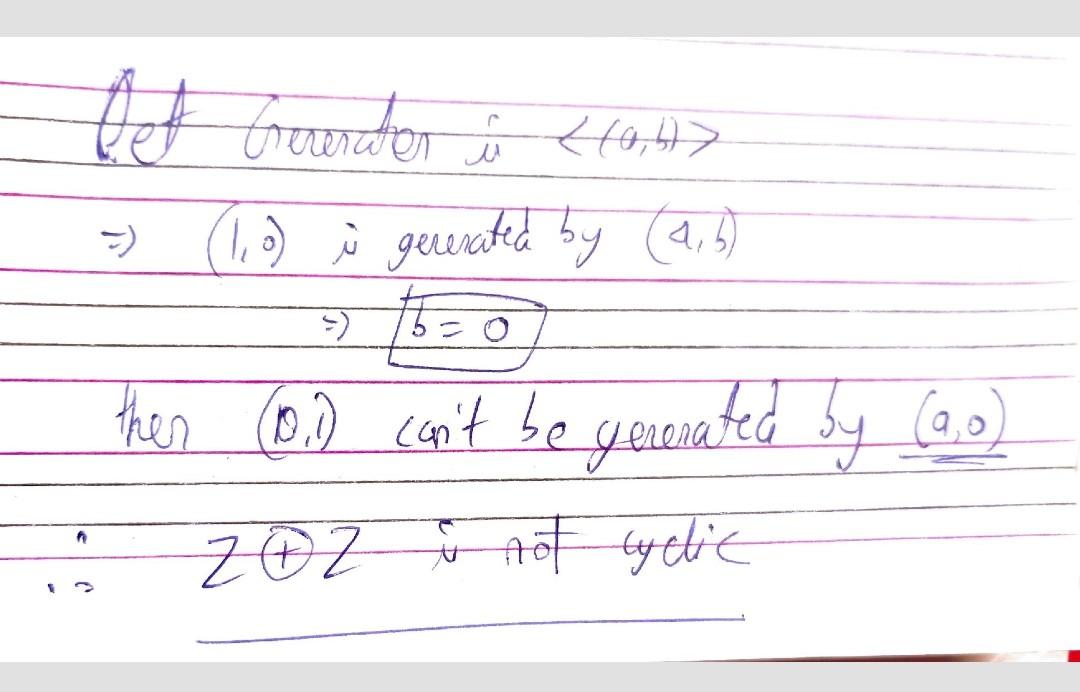 Let Generator is <(a,b)>
=) (1,0) is generated by (a,b)
=) b = 0
then (0,1) can't be generated by (a,0)
∴ Z ⊕ Z is not cyclic